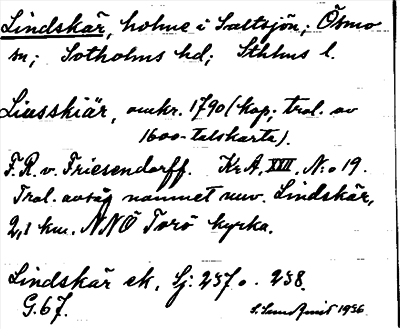 Lindskär, holme i Saltsjön; Ösmo
sn; Sotholms hd; Sthlms l.
Liusskiär, omkr. 1790 (kop; trol. av
1600-talskarta).
F.R. v. Friesendorff. KrA, XXII, N:o 19.
Trol. avsåg namnet nuv. Lindskär,
2,1 km. NNÖ Torö kyrka.
Lindskär ek. Sj: 257 o. 258.
G. 67.
S. Sundqvist 1936